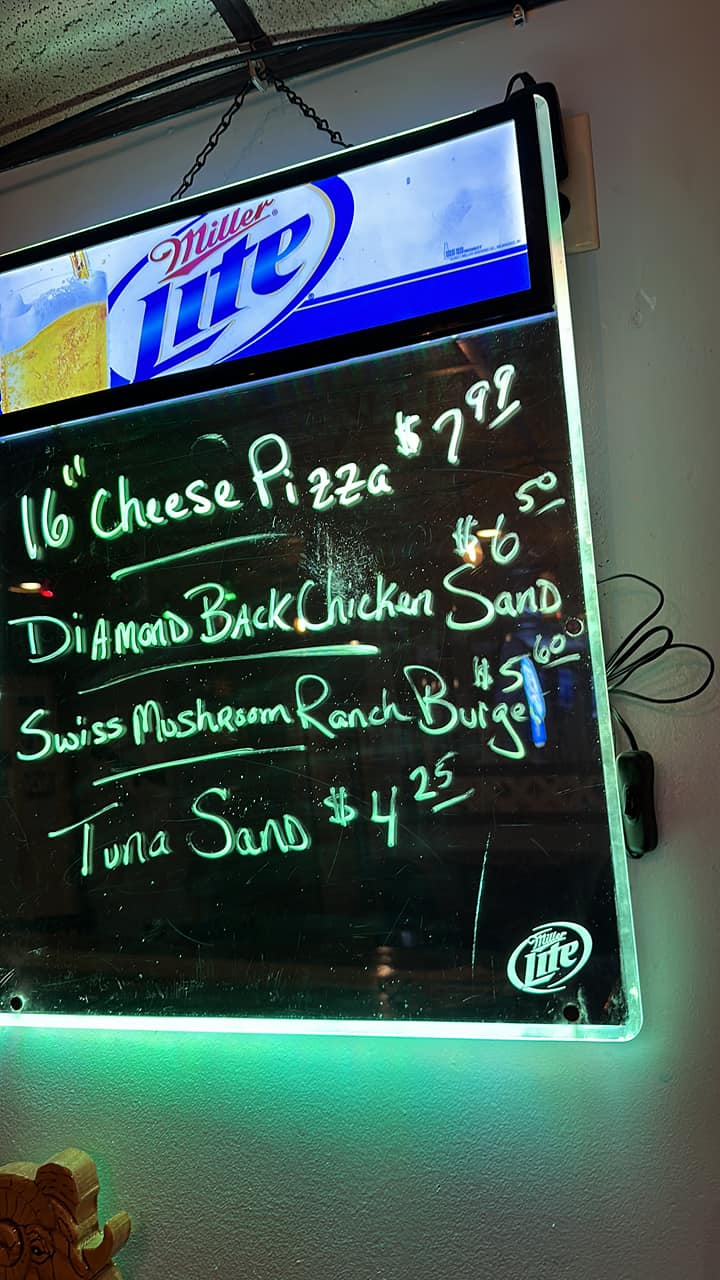 Miller
Lite
16" Cheese Pizza $7 99
$6 50
DiAMOND BACK Chicken SAND
$5 60
Swiss MushRoom Ranch Burge
Tuna SAND $4 25
Miller
Lite